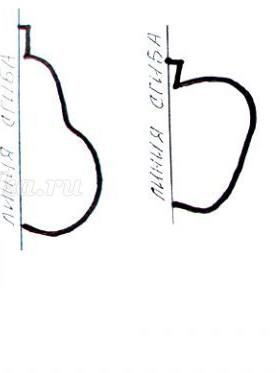 линия сгиба
линия сгиба
a.ru